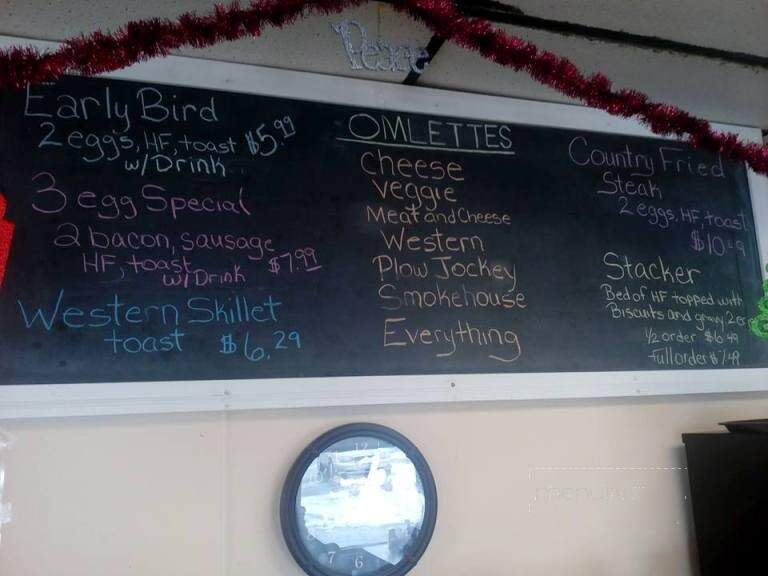 Peace
Early Bird
2 eggs, HF, toast $5.99
w/Drink
3 egg Special
2 bacon, sausage
HF, toast $7.99
w/Drink
Western Skillet
toast $6.29
OMLETTES
cheese
veggie
Meat and Cheese
Western
Plow Jockey
Smokehouse
Everything
Country Fried
Steak
2 eggs, HF, toast
Stacker
Bed of HF topped with
Biscuits and gravy 2
1/2 order $6.49
Full order
12
7 6
menu